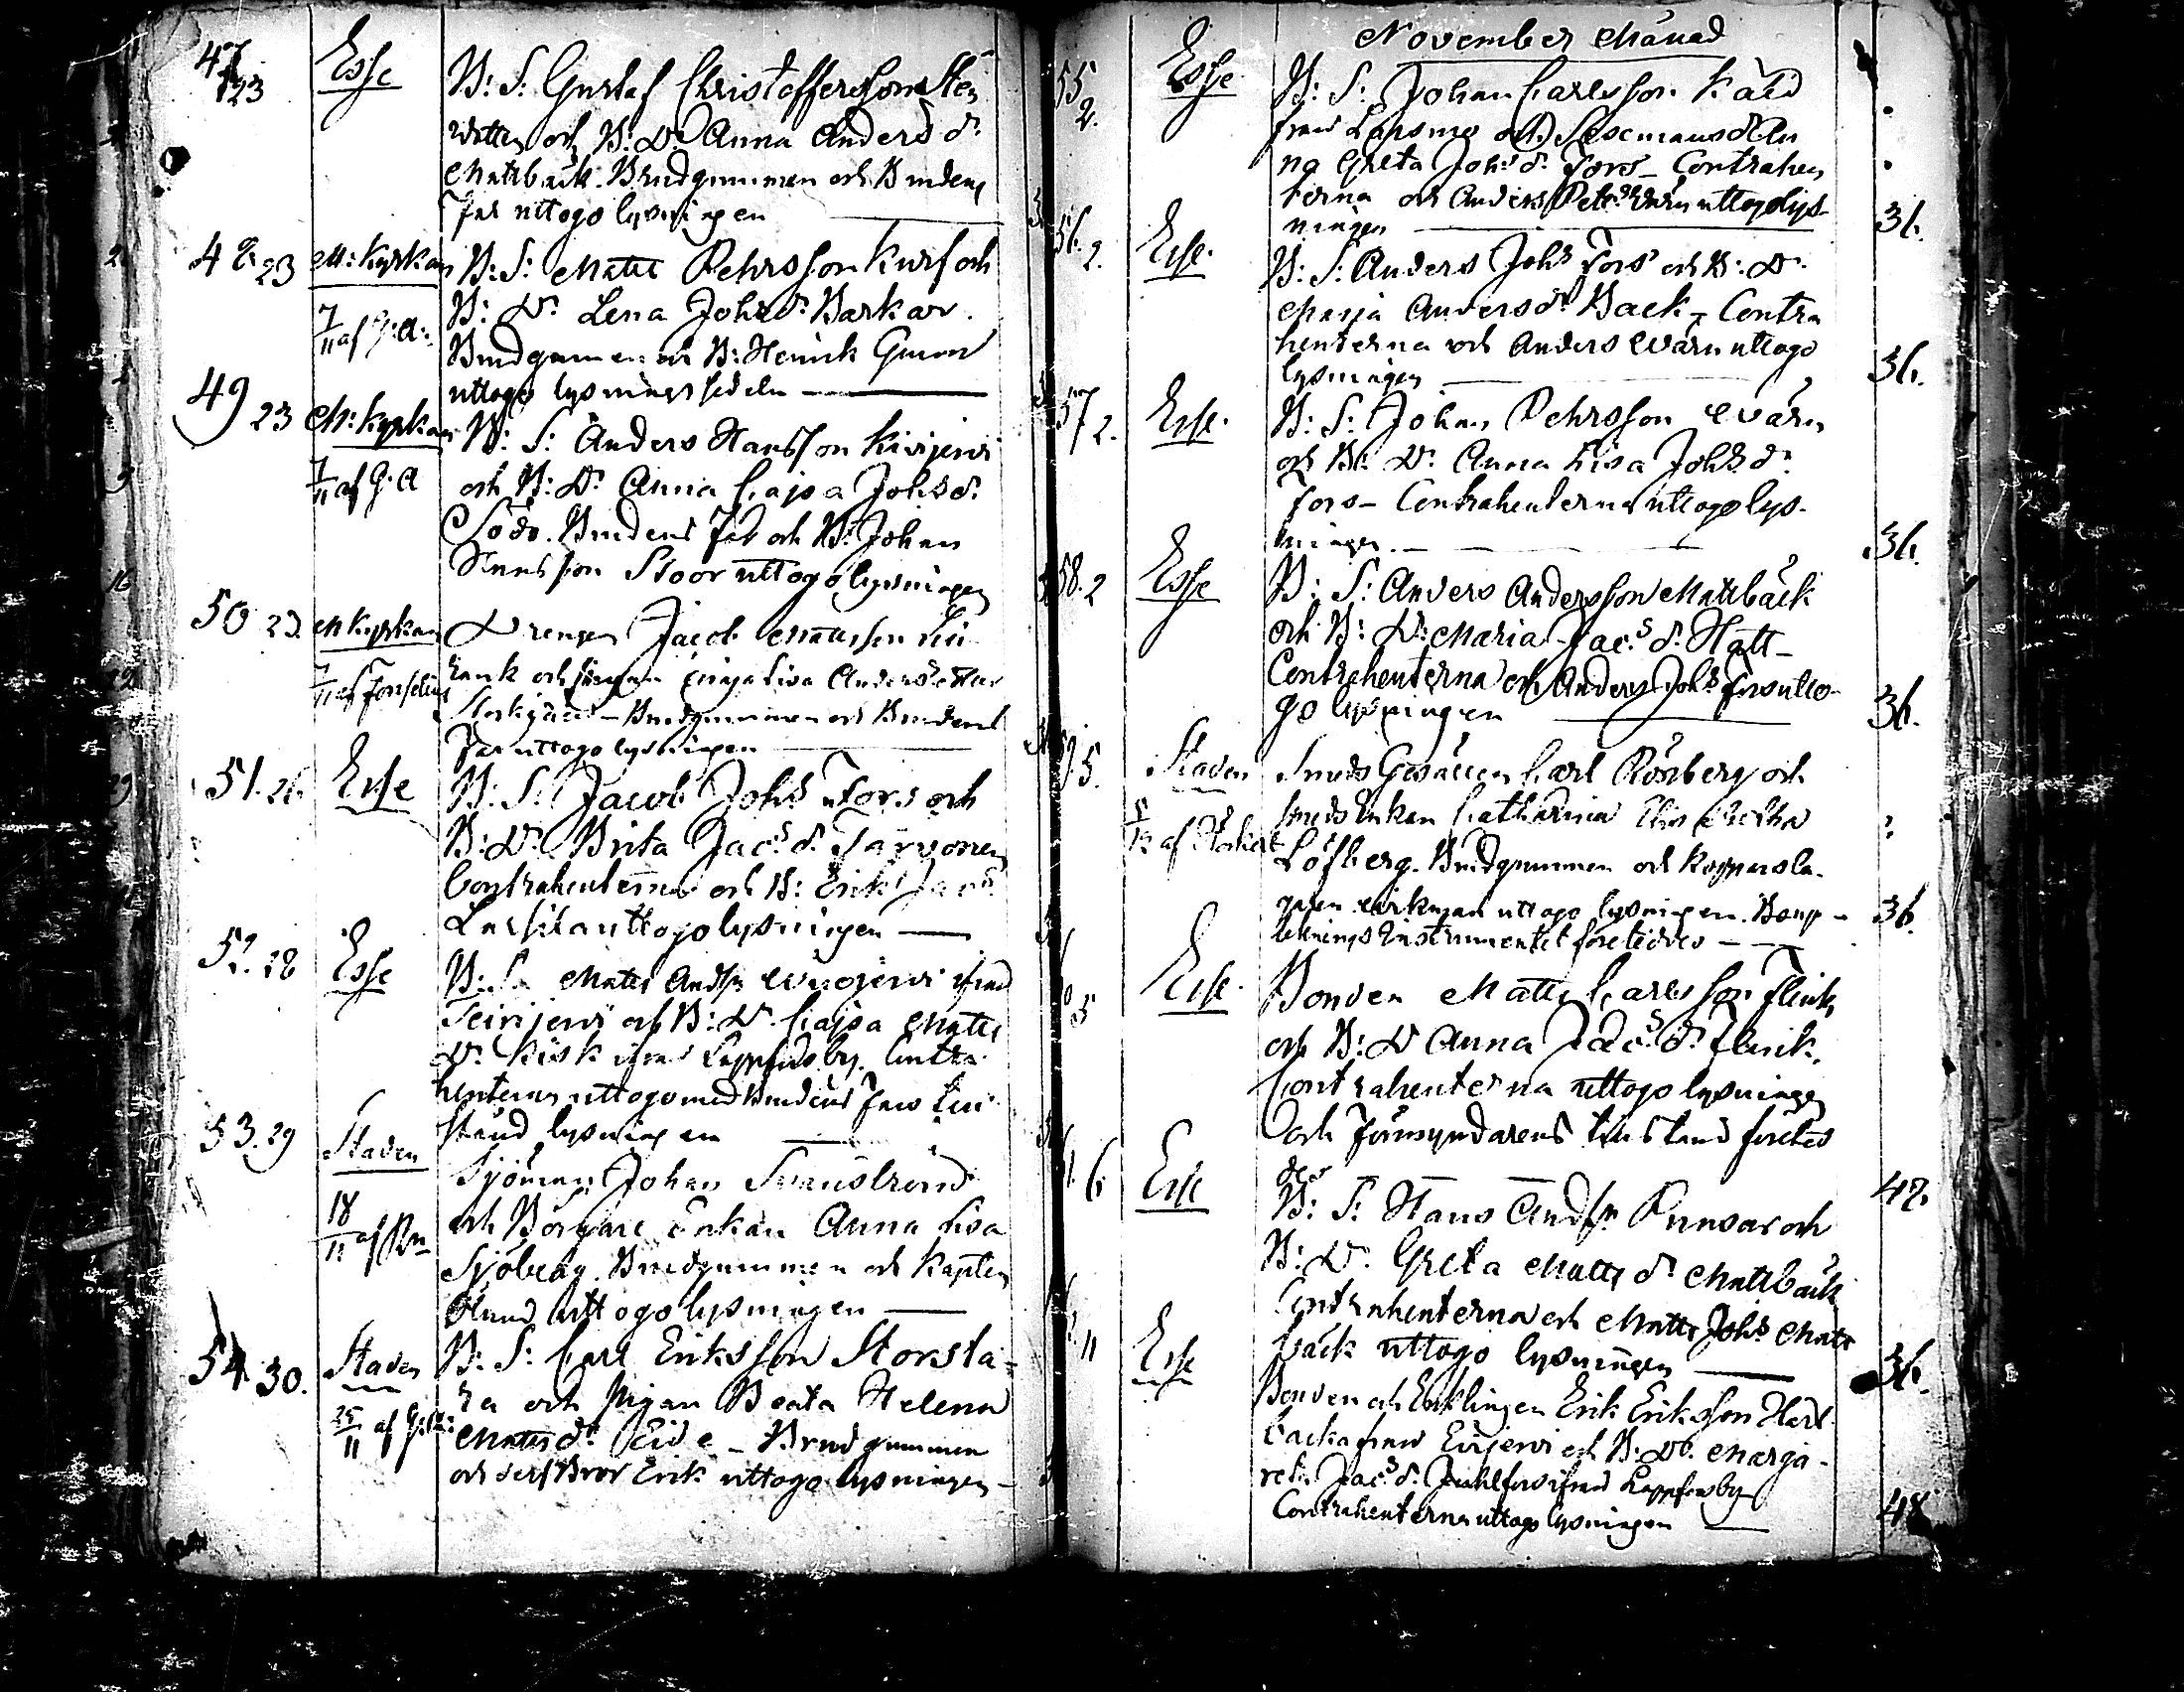 47
23
Esse
B: S: Gustaf Christoffersson
och B: D: Anna Anders d:
Mattbäck. Brudgummen och Brudens
Far uttogo lysningen
48. 23
M: Kyrkan
7/11 af G: A:
B: S: Matts Pehrsson Kurf och
B: D: Lena Johs d: Barkar.
Brudgummen och B: Henrik
uttogo lysningssedeln
49 23
M: Kyrkan
7/11 af G. A
B: S: Anders Hansson Kivijervi
och B: D: Anna Cajsa Johs d:
Sodo. Brudens Far och B: Johan
Hansson Stoor uttogo lysningen
50 23.
M Kyrkan
7/11 af Forselius
Drengen Jacob Mattsson
och pigan Lisa Anders dotter
Brudgummen och Brudens
Far uttogo lysningen
51. 26.
Esse
B: S: Jacob Johs Fors och
B: D: Brita Jac: d: Tarvonen
Contrahenterna och B: Erik Jacs
uttogo lysningen
52. 28
Esse
B: S: Matts Andss ifrån
och B: D: Cajsa Matts
D: Kisk ifrån Lappfors by. Contra
henterna uttogo med Brudens
lysningen
53. 29
Staden
18/11 af
Sjöman Johan Svanström
och Borgare Enkan Anna Lisa
Sjöberg. Brudgummen och Kapten
uttogo lysningen
54. 30.
Staden
25/11 af G: A:
B: S: Carl Eriksson Storsta-
ra och Pigan Beata Helena
Matts d: Eide - Brudgummen
och dess Bror Erik uttogo lysningen
November Månad
55
2.
Esse
B: S: Johan Carlsson Kåld
från Lapsmo och
na Greta Johs d: Fors - Contrahen
terna och Anders uttogo lys-
ningen
36.
56. 2.
Esse.
B: S: Anders Johs Fors och B: D:
Marja Anders d: Back - Contra
henterna och Anders Evärn uttogo
lysningen
36.
57 2.
Esse.
B: S: Johan Pehrsson Evärn
och B: D: Anna Lisa Johs d:
Fors - Contrahenterna uttogo lys-
ningen.
36.
58. 2
Esse
B: S: Anders Andersson Mattbäck
och B: D: Maria Jac: d: Hatt -
Contrahenterna och Anders Johs Fors utto-
go lysningen
36.
5.
Staden
Smeds Gesällen Carl Rosberg och
Smeds Enkan Catharina
Löfberg. Brudgummen och Kopparsla-
garen uttogo lysningen.
36.
5
Esse.
Bonden Matts Carlsson Flink
och B: D Anna Jac: d: Flink.
Contrahenterna uttogo lysningen
och Förmyndarens tillstånd företed
des
6
Esse
42.
B: S: Hans Andss Punsar och
B: D: Greta Matts d: Mattbäck
Contrahenterna och Matts Johs Matt
bäck uttogo lysningen
36.
11
Esse
Bonden och Enklingen Erik Eriksson Hert
backa från Evijervi och B: D. Marga-
reta Jac: d: ifrån Lappfors by
Contrahenterna uttogo lysningen
48